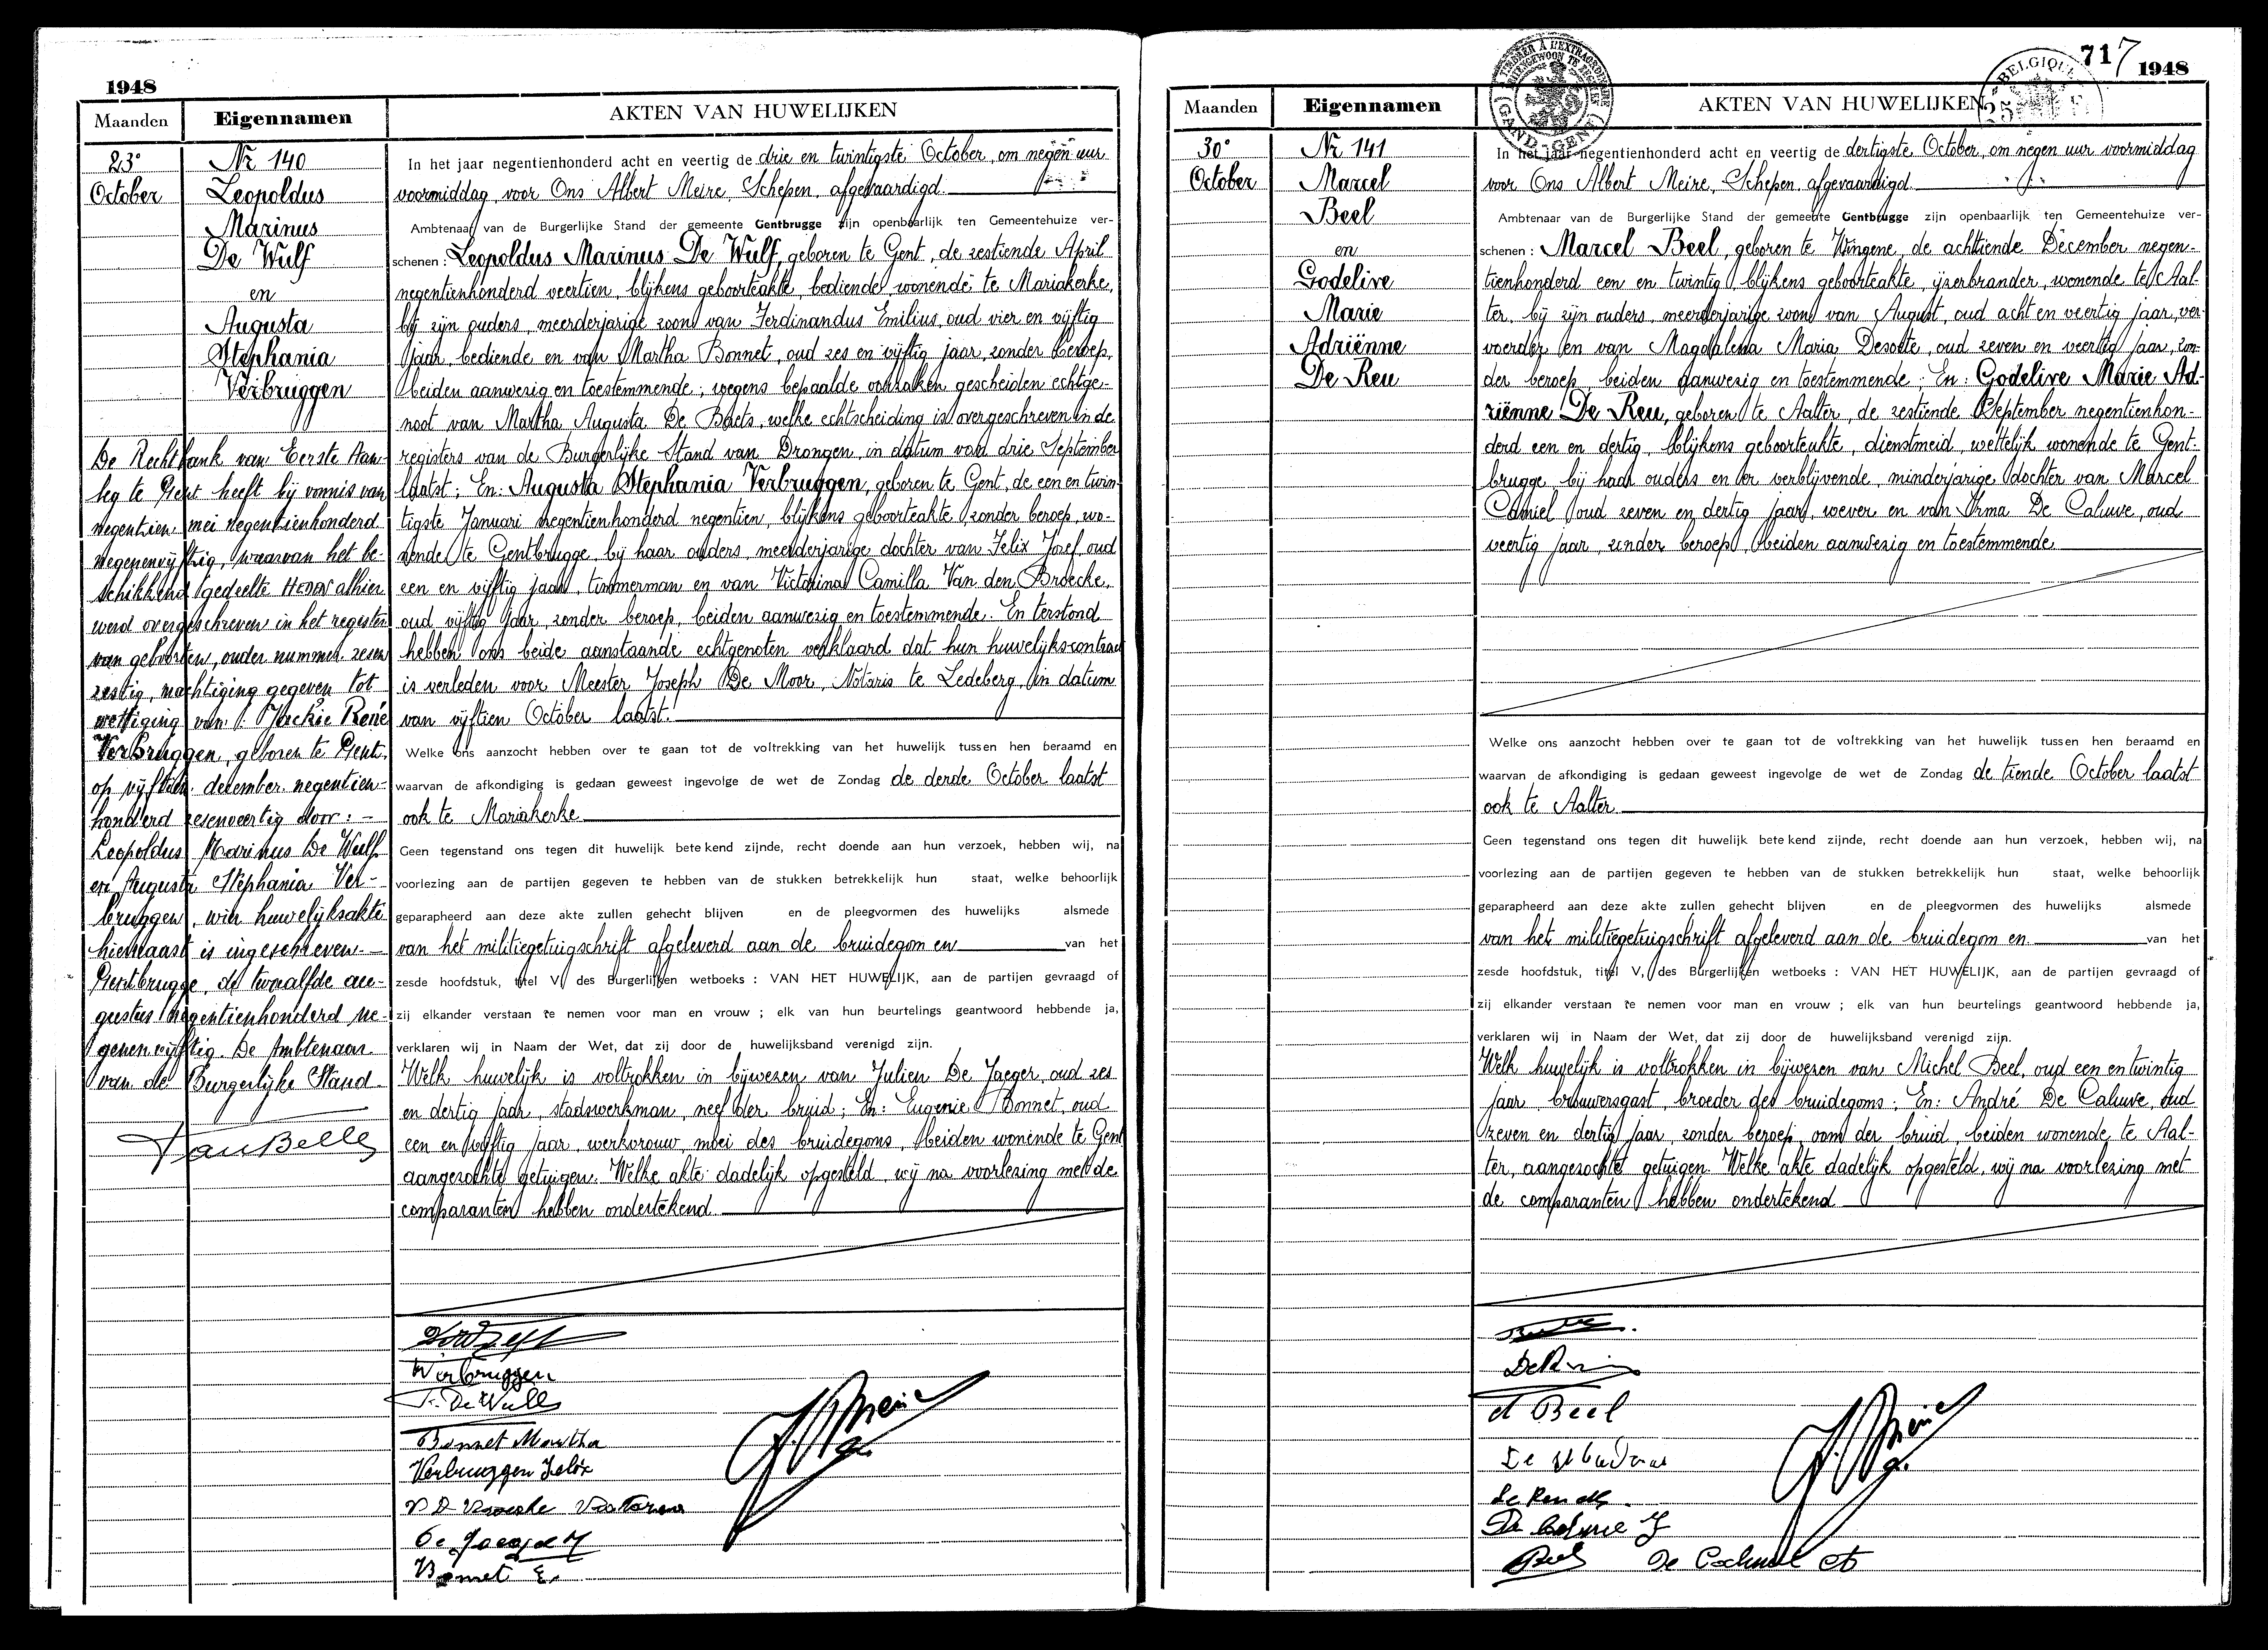 1948
Maanden
Eigennamen
AKTEN VAN HUWELIJKEN
23°
October
Nr 140
Leopoldus
Marinus
De Wulf
en
Augusta
Stephania
Verbruggen
In het jaar negentienhonderd acht en veertig de drie en twintigste October, om negen uur
voormiddag, voor Ons Albert Meire, Schepen, afgevaardigd
Ambtenaar van de Burgerlijke Stand der gemeente Gentbrugge zijn openbaarlijk ten Gemeentehuize ver-
schenen: Leopoldus Marinus De Wulf, geboren te Gent, de zestiende April
negentienhonderd veertien, blijkens geboorteakte, bediende, wonende te Mariakerke,
bij zijn ouders, meerderjarige zoon van Ferdinandus Emilius, oud vier en vijftig
jaar, bediende en van Martha Bonnet, oud zes en vijftig jaar, zonder beroep,
beiden aanwezig en toestemmende; wegens bepaalde oorzaken gescheiden echtge-
noot van Martha Augusta De Baets, welke echtscheiding is overgeschreven in de
registers van de Burgerlijke Stand van Drongen, in datum van drie September
laatst; En: Augusta Stephania Verbruggen, geboren te Gent, de een en twin-
tigste Januari negentienhonderd negentien, blijkens geboorteakte, zonder beroep, wo-
nende te Gentbrugge, bij haar ouders, meerderjarige dochter van Felix Josef, oud
een en vijftig jaar, timmerman en van Victorina Camilla Van den Broecke,
oud vijftig jaar, zonder beroep, beiden aanwezig en toestemmende. En terstond
hebben ons beide aanstaande echtgenoten verklaard dat hun huwelijkscontract
is verleden voor Meester Joseph De Moor, Notaris te Ledeberg, in datum
van vijftien October laatst.
Welke ons aanzocht hebben over te gaan tot de voltrekking van het huwelijk tussen hen beraamd en
waarvan de afkondiging is gedaan geweest ingevolge de wet de Zondag de derde October laatst
ook te Mariakerke
Geen tegenstand ons tegen dit huwelijk betekend zijnde, recht doende aan hun verzoek, hebben wij, na
voorlezing aan de partijen gegeven te hebben van de stukken betrekkelijk hun staat, welke behoorlijk
geparapheerd aan deze akte zullen gehecht blijven en de pleegvormen des huwelijks alsmede
van het militiegetuigschrift afgeleverd aan de bruidegom en van het
zesde hoofdstuk, titel V, des Burgerlijken wetboeks : VAN HET HUWELIJK, aan de partijen gevraagd of
zij elkander verstaan te nemen voor man en vrouw ; elk van hun beurtelings geantwoord hebbende ja,
verklaren wij in Naam der Wet, dat zij door de huwelijksband verenigd zijn.
Welk huwelijk is voltrokken in bijwezen van Julien De Jaeger, oud zes
en dertig jaar, stadswerkman, neef der bruid; En: Eugenie Bonnet, oud
een en vijftig jaar, werkvrouw, moei des bruidegoms, beiden wonende te Gent
aangezochte getuigen. Welke akte dadelijk opgesteld, wij na voorlezing met de
comparanten hebben ondertekend
De Rechtbank van Eerste Aan-
leg te Gent heeft bij vonnis van
negentien mei negentienhonderd
negenenvijftig, waarvan het be-
schikkend gedeelte HEDEN alhier
werd overgeschreven in het register
van geboorten, onder nummer zesen
zestig, machtiging gegeven tot
wettiging van: Jackie René
Verbruggen, geboren te Gent,
op vijftien december negentien-
honderd zesenveertig door: -
Leopoldus Marinus De Wulf
en Augusta Stephania Ver-
bruggen, wier huwelijksakte
hiernaast is ingeschreven. -
Gentbrugge, de twaalfde au-
gustus negentienhonderd ne-
genenvijftig. De Ambtenaar
van de Burgerlijke Stand.
VanBelle
Verbruggen
F. De Wulf
Bonnet Martha
Verbruggen Felix
De Jaeger J
Bonnet E.
717
1948
Maanden
Eigennamen
AKTEN VAN HUWELIJKEN
30°
October
Nr 141
Marcel
Beel
en
Godelive
Marie
Adriënne
De Reu
In het jaar negentienhonderd acht en veertig de dertigste October, om negen uur voormiddag
voor Ons Albert Meire, Schepen, afgevaardigd
Ambtenaar van de Burgerlijke Stand der gemeente Gentbrugge zijn openbaarlijk ten Gemeentehuize ver-
schenen: Marcel Beel, geboren te Wingene, de achttiende December negen-
tienhonderd een en twintig, blijkens geboorteakte, ijzerbrander, wonende te Aal-
ter, bij zijn ouders, meerderjarige zoon van August, oud acht en veertig jaar, ver-
voerder en van Magdalena Maria Desoete, oud zeven en veertig jaar, zon-
der beroep, beiden aanwezig en toestemmende; En: Godelive Marie Ad-
riënne De Reu, geboren te Aalter, de zestiende September negentienhon-
derd een en dertig, blijkens geboorteakte, dienstmeid, wettelijk wonende te Gent-
brugge, bij haar ouders en er verblijvende, minderjarige dochter van Marcel
Camiel oud zeven en dertig jaar, wever en van Irma De Caluwe, oud
veertig jaar, zonder beroep, beiden aanwezig en toestemmende
Welke ons aanzocht hebben over te gaan tot de voltrekking van het huwelijk tussen hen beraamd en
waarvan de afkondiging is gedaan geweest ingevolge de wet de Zondag de tiende October laatst
ook te Aalter.
Geen tegenstand ons tegen dit huwelijk betekend zijnde, recht doende aan hun verzoek, hebben wij, na
voorlezing aan de partijen gegeven te hebben van de stukken betrekkelijk hun staat, welke behoorlijk
geparapheerd aan deze akte zullen gehecht blijven en de pleegvormen des huwelijks alsmede
van het militiegetuigschrift afgeleverd aan de bruidegom en van het
zesde hoofdstuk, titel V, des Burgerlijken wetboeks : VAN HET HUWELIJK, aan de partijen gevraagd of
zij elkander verstaan te nemen voor man en vrouw ; elk van hun beurtelings geantwoord hebbende ja,
verklaren wij in Naam der Wet, dat zij door de huwelijksband verenigd zijn.
Welk huwelijk is voltrokken in bijwezen van Michel Beel, oud een en twintig
jaar, brouwersgast, broeder des bruidegoms; En: André De Caluwe, oud
zeven en dertig jaar, zonder beroep, oom der bruid, beiden wonende te Aal-
ter, aangezochte getuigen. Welke akte dadelijk opgesteld, wij na voorlezing met
de comparanten hebben ondertekend
A Beel
Beel